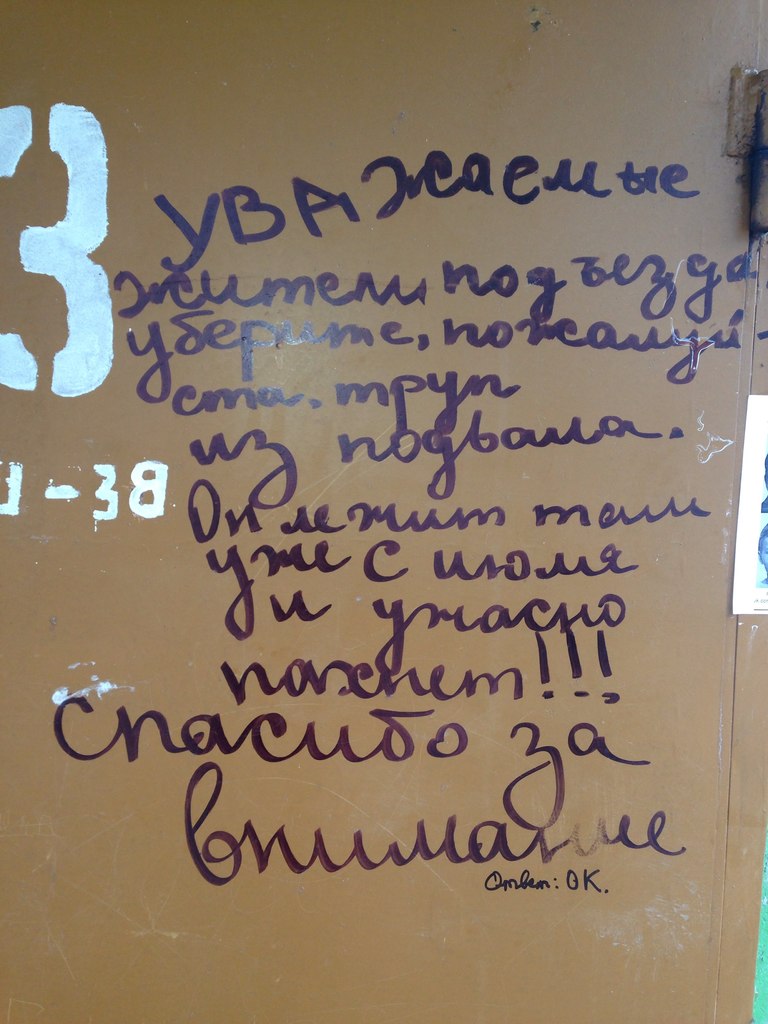 3
УВАжаемые
жители подъезда,
уберите, пожалуй-
ста, труп
из подвала.
-38
Он лежит там
уже с июля
и ужасно
пахнет!!!
Спасибо за
внимание
Ответ: ОК.